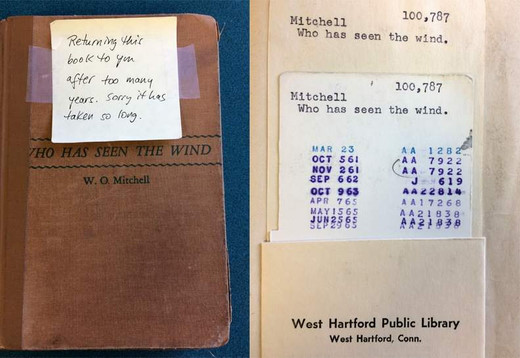 Returning this
book to you
after too many
years. Sorry it has
taken so long.
WHO HAS SEEN THE WIND
W. O. Mitchell
Mitchell 100,787
Who has seen the wind.
Mitchell 100,787
Who has seen the wind.
MAR 23 AA 1282
OCT 5 61 AA 7922
NOV 2 61 AA 7922
SEP 6 62 J 619
OCT 9 63 AA22814
APR 7 65 AA17268
MAY 15 65 AA21838
JUN 25 65 AA21838
SEP 29 65
West Hartford Public Library
West Hartford, Conn.